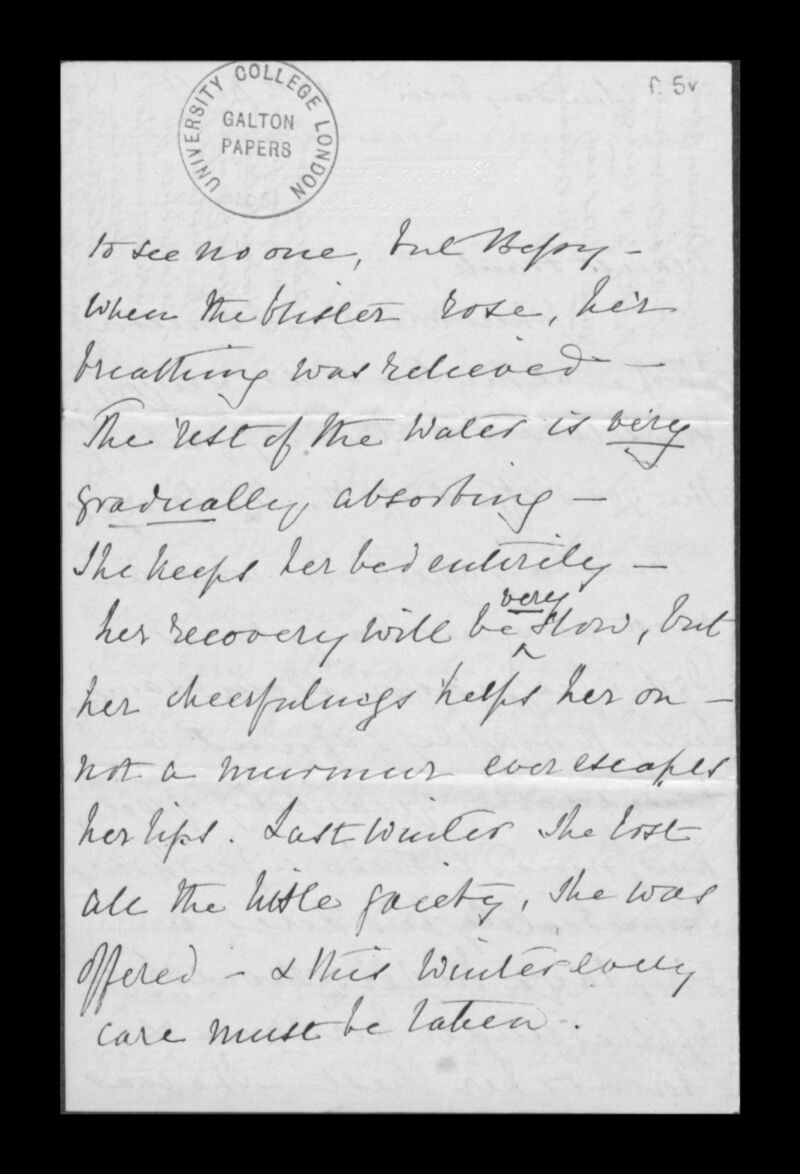 UNIVERSITY COLLEGE LONDON
GALTON
PAPERS
f. 5v
to see no one, but Bessy –
When the blister rose, her
breathing was relieved –
The rest of the Water is very
gradually absorbing –
She keeps her bed entirely –
very
her recovery will be ^ slow, but
her cheerfulness helps her on –
not a murmur ever escapes
her lips. Last Winter she lost
all the little gaiety, she was
offered – & this Winter every
care must be taken.